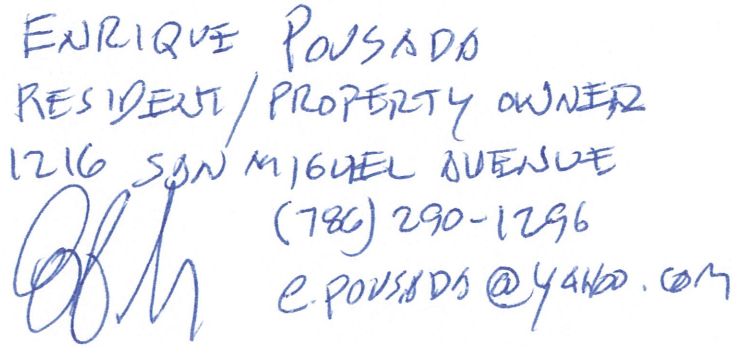 ENRIQUE POUSADA
RESIDENT/PROPERTY OWNER
1216 SAN MIGUEL AVENUE
(786) 290-1296
e.pousada@yahoo.com